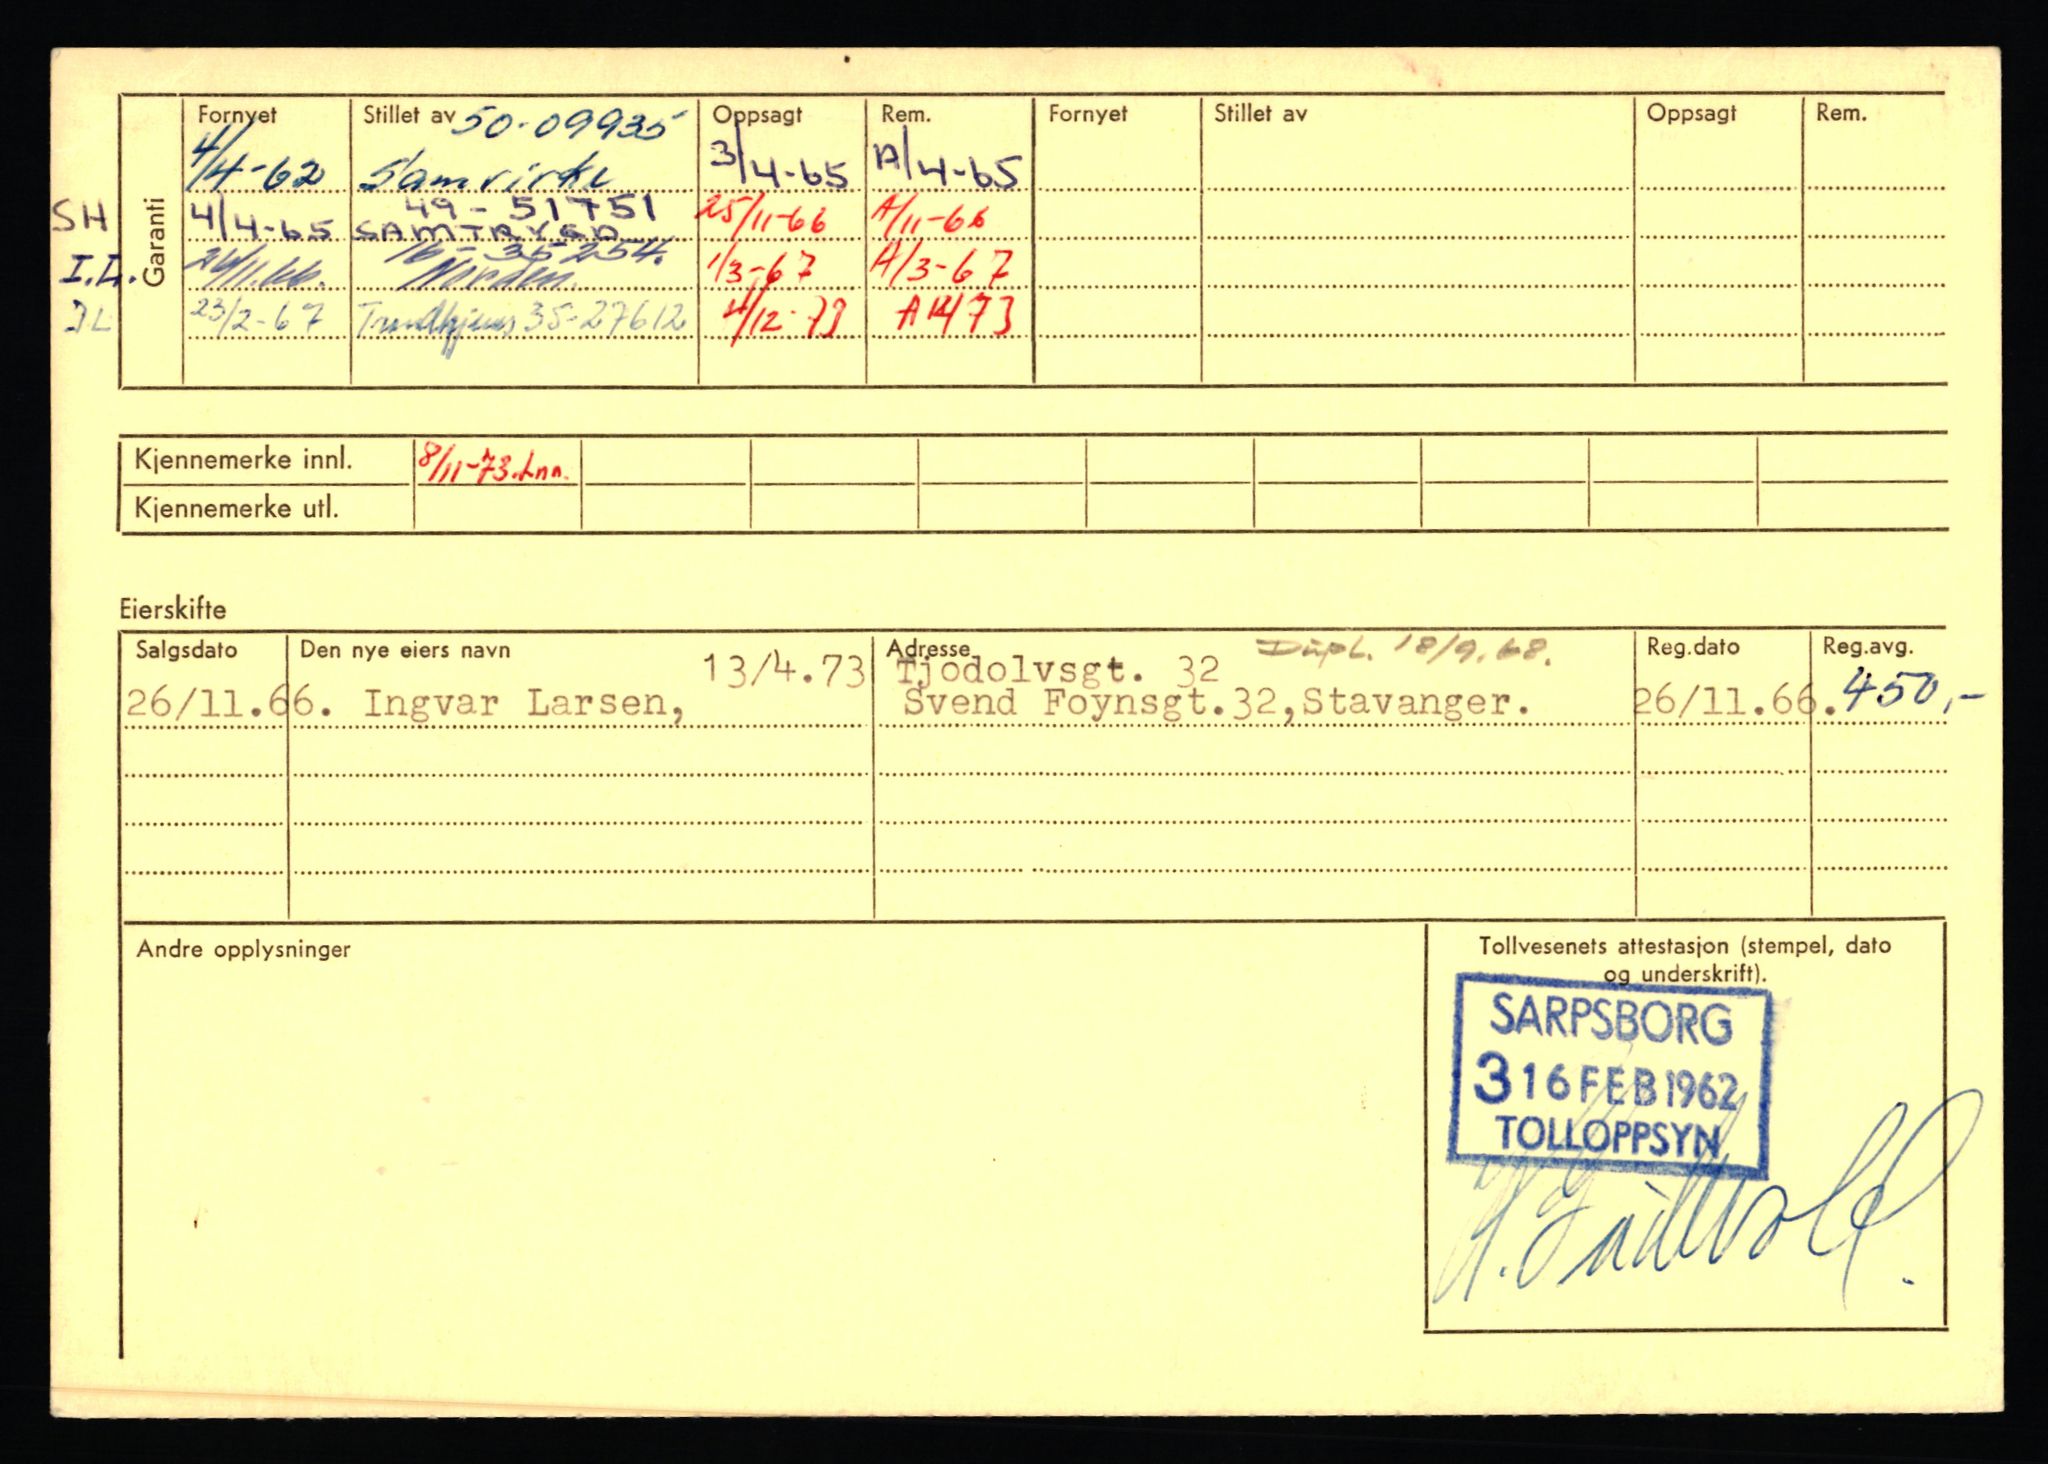 Garanti
Fornyet Stillet av 50-09935 Oppsagt Rem. Fornyet Stillet av Oppsagt Rem.
4/4-62 Samvirke 3/4-65 A/4-65
SH 4/4-65 49-51751 SAMTRYGD 25/11-66 A/11-66
I.L. 26/11.66. 16-35254. Norden. 1/3-67 A/3-67
IL 23/2-67 Trondhjems 35-27612 4/12-73 A 12/73
Kjennemerke innl. 8/11-73.
Kjennemerke utl.
Eierskifte
Salgsdato Den nye eiers navn Adresse Reg.dato Reg.avg.
13/4.73 Tjodolvsgt. 32 Dupl. 18/9.68.
26/11.66. Ingvar Larsen, Svend Foynsgt.32,Stavanger. 26/11.66. 450,-
Andre opplysninger
Tollvesenets attestasjon (stempel, dato
og underskrift).
SARPSBORG
3 16 FEB 1962
TOLLOPPSYN